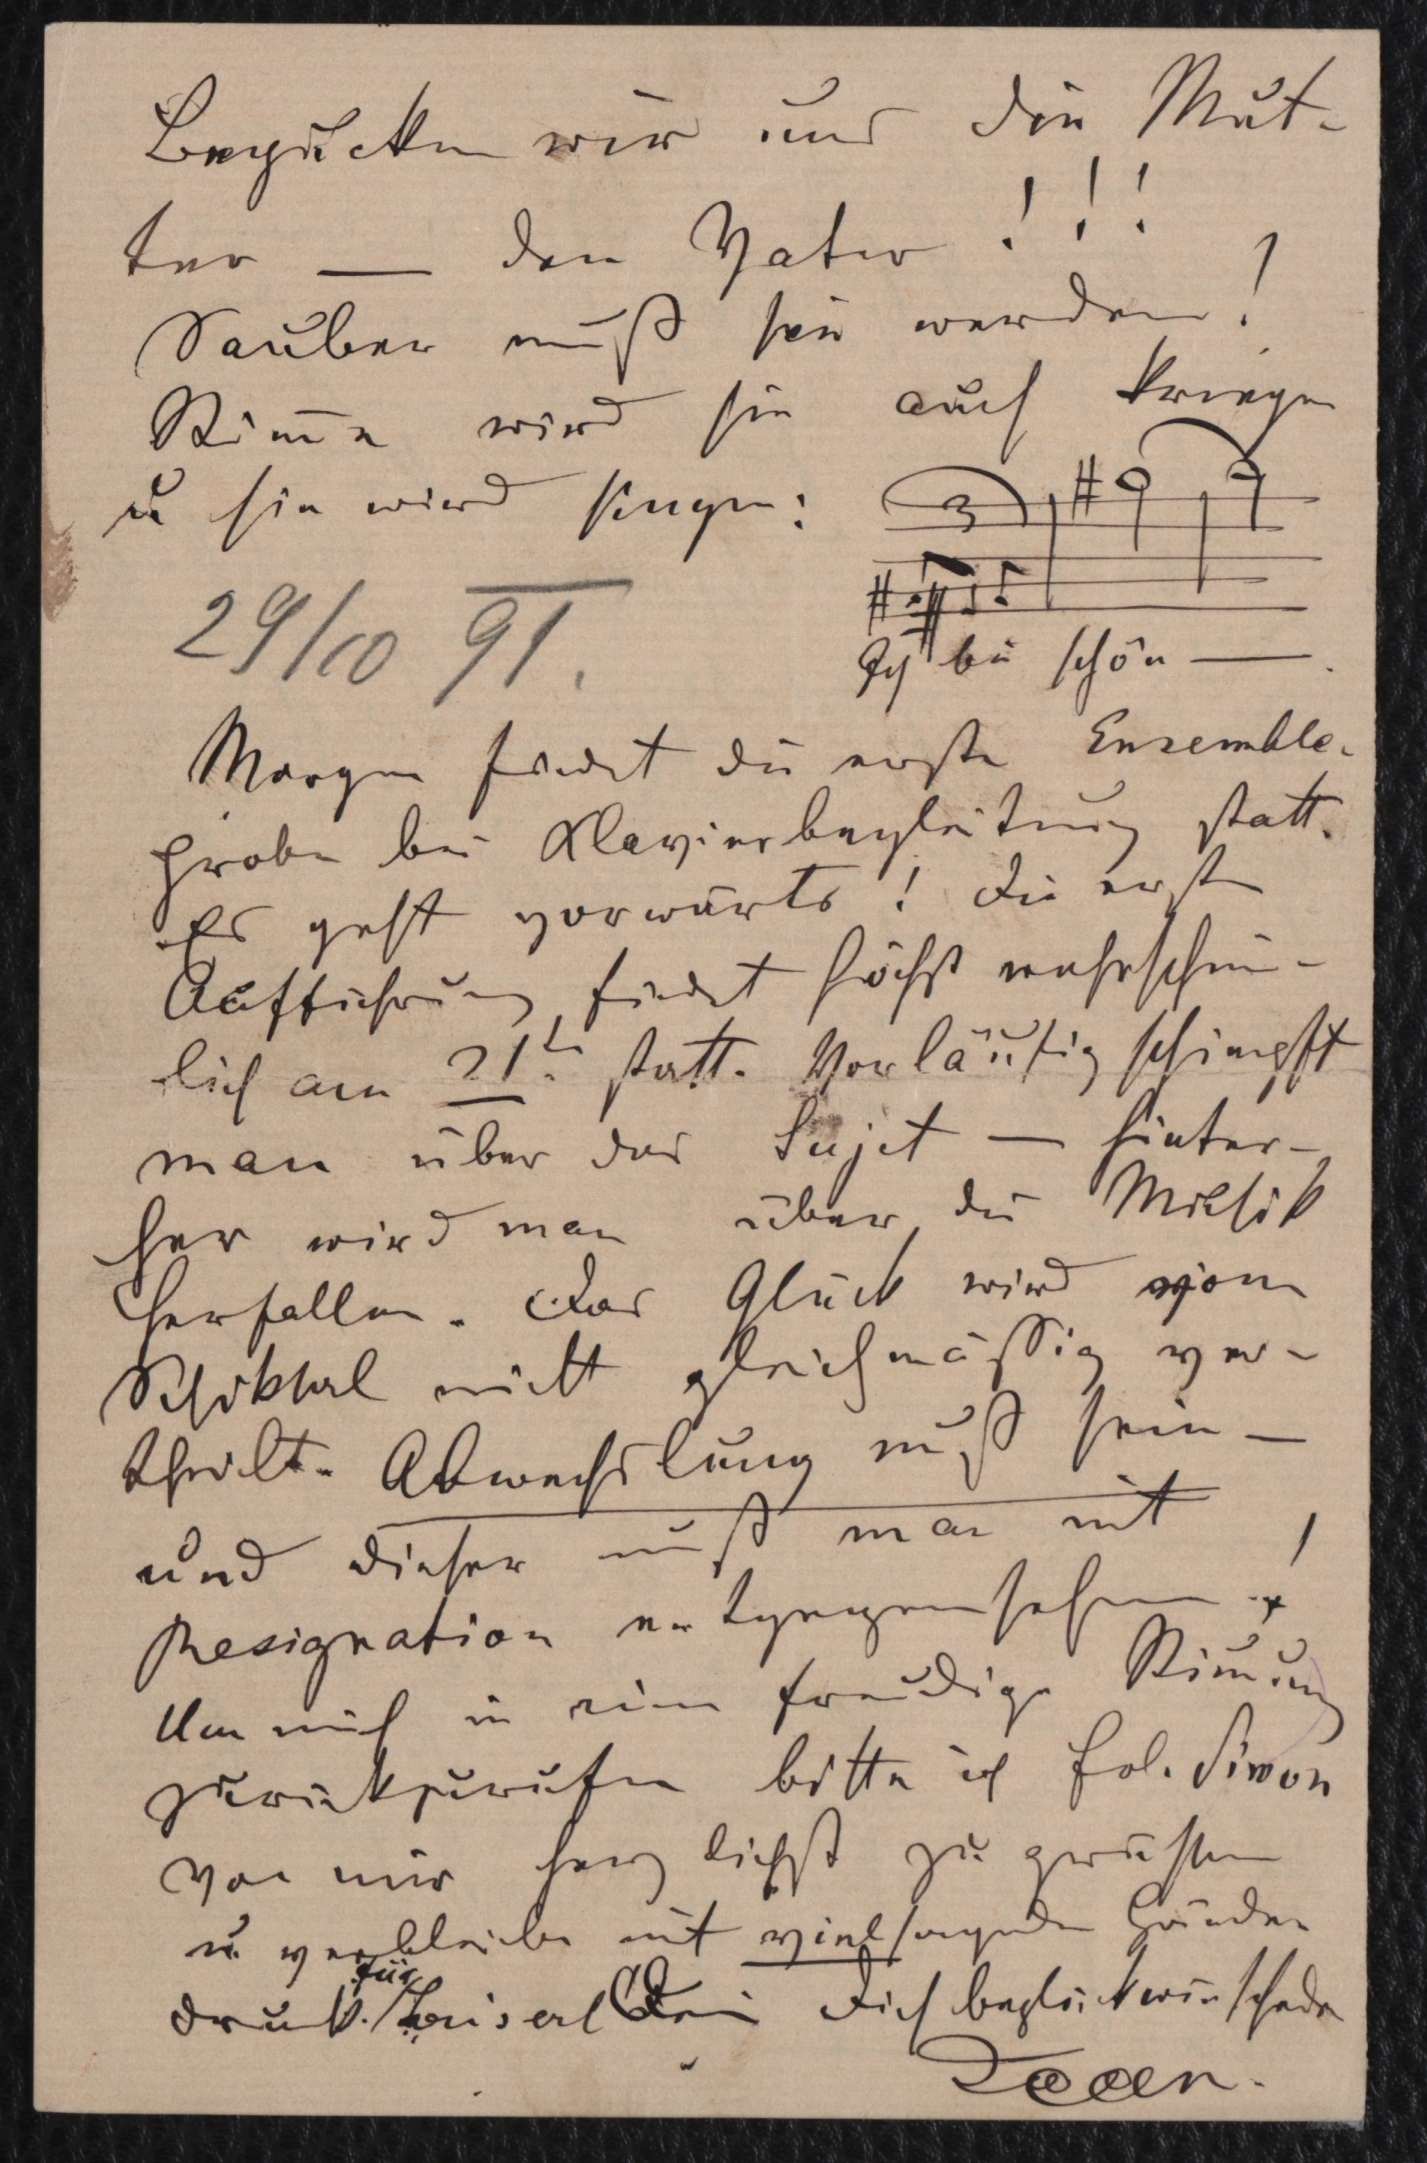 wir uns die Mut-
ter — den Vater !!!
Sauber muß sie werden!
Stim̅e wird sie auch kriegen
u sie wird singen:
3
29/10 91.
Ich bin schön —.
Morgen findet die erste Ensemble-
probe bei Klavierbegleitung statt.
Es geht vorwärts! Die erste
Aufführung findet höchst wahrschein-
lich am 21ten statt. Vorläufig schimpft
man über das Sujet — hinter-
her wird man über die Musik
herfallen. Das Glück wird vom
Schiksal nicht gleichmäßig ver-
theilt. Abwechslung muß sein —
und dieser muß man mit
Resignation entgegensehen!
Um mich in eine freudige Stimmung
zurückzurufen bitte ich Frl. Simon
von mir herzlichst zu grüßen
u. verbleibe mit vielsagenden Hände
druk. für Dein Dich beglückwünschender
Jean.